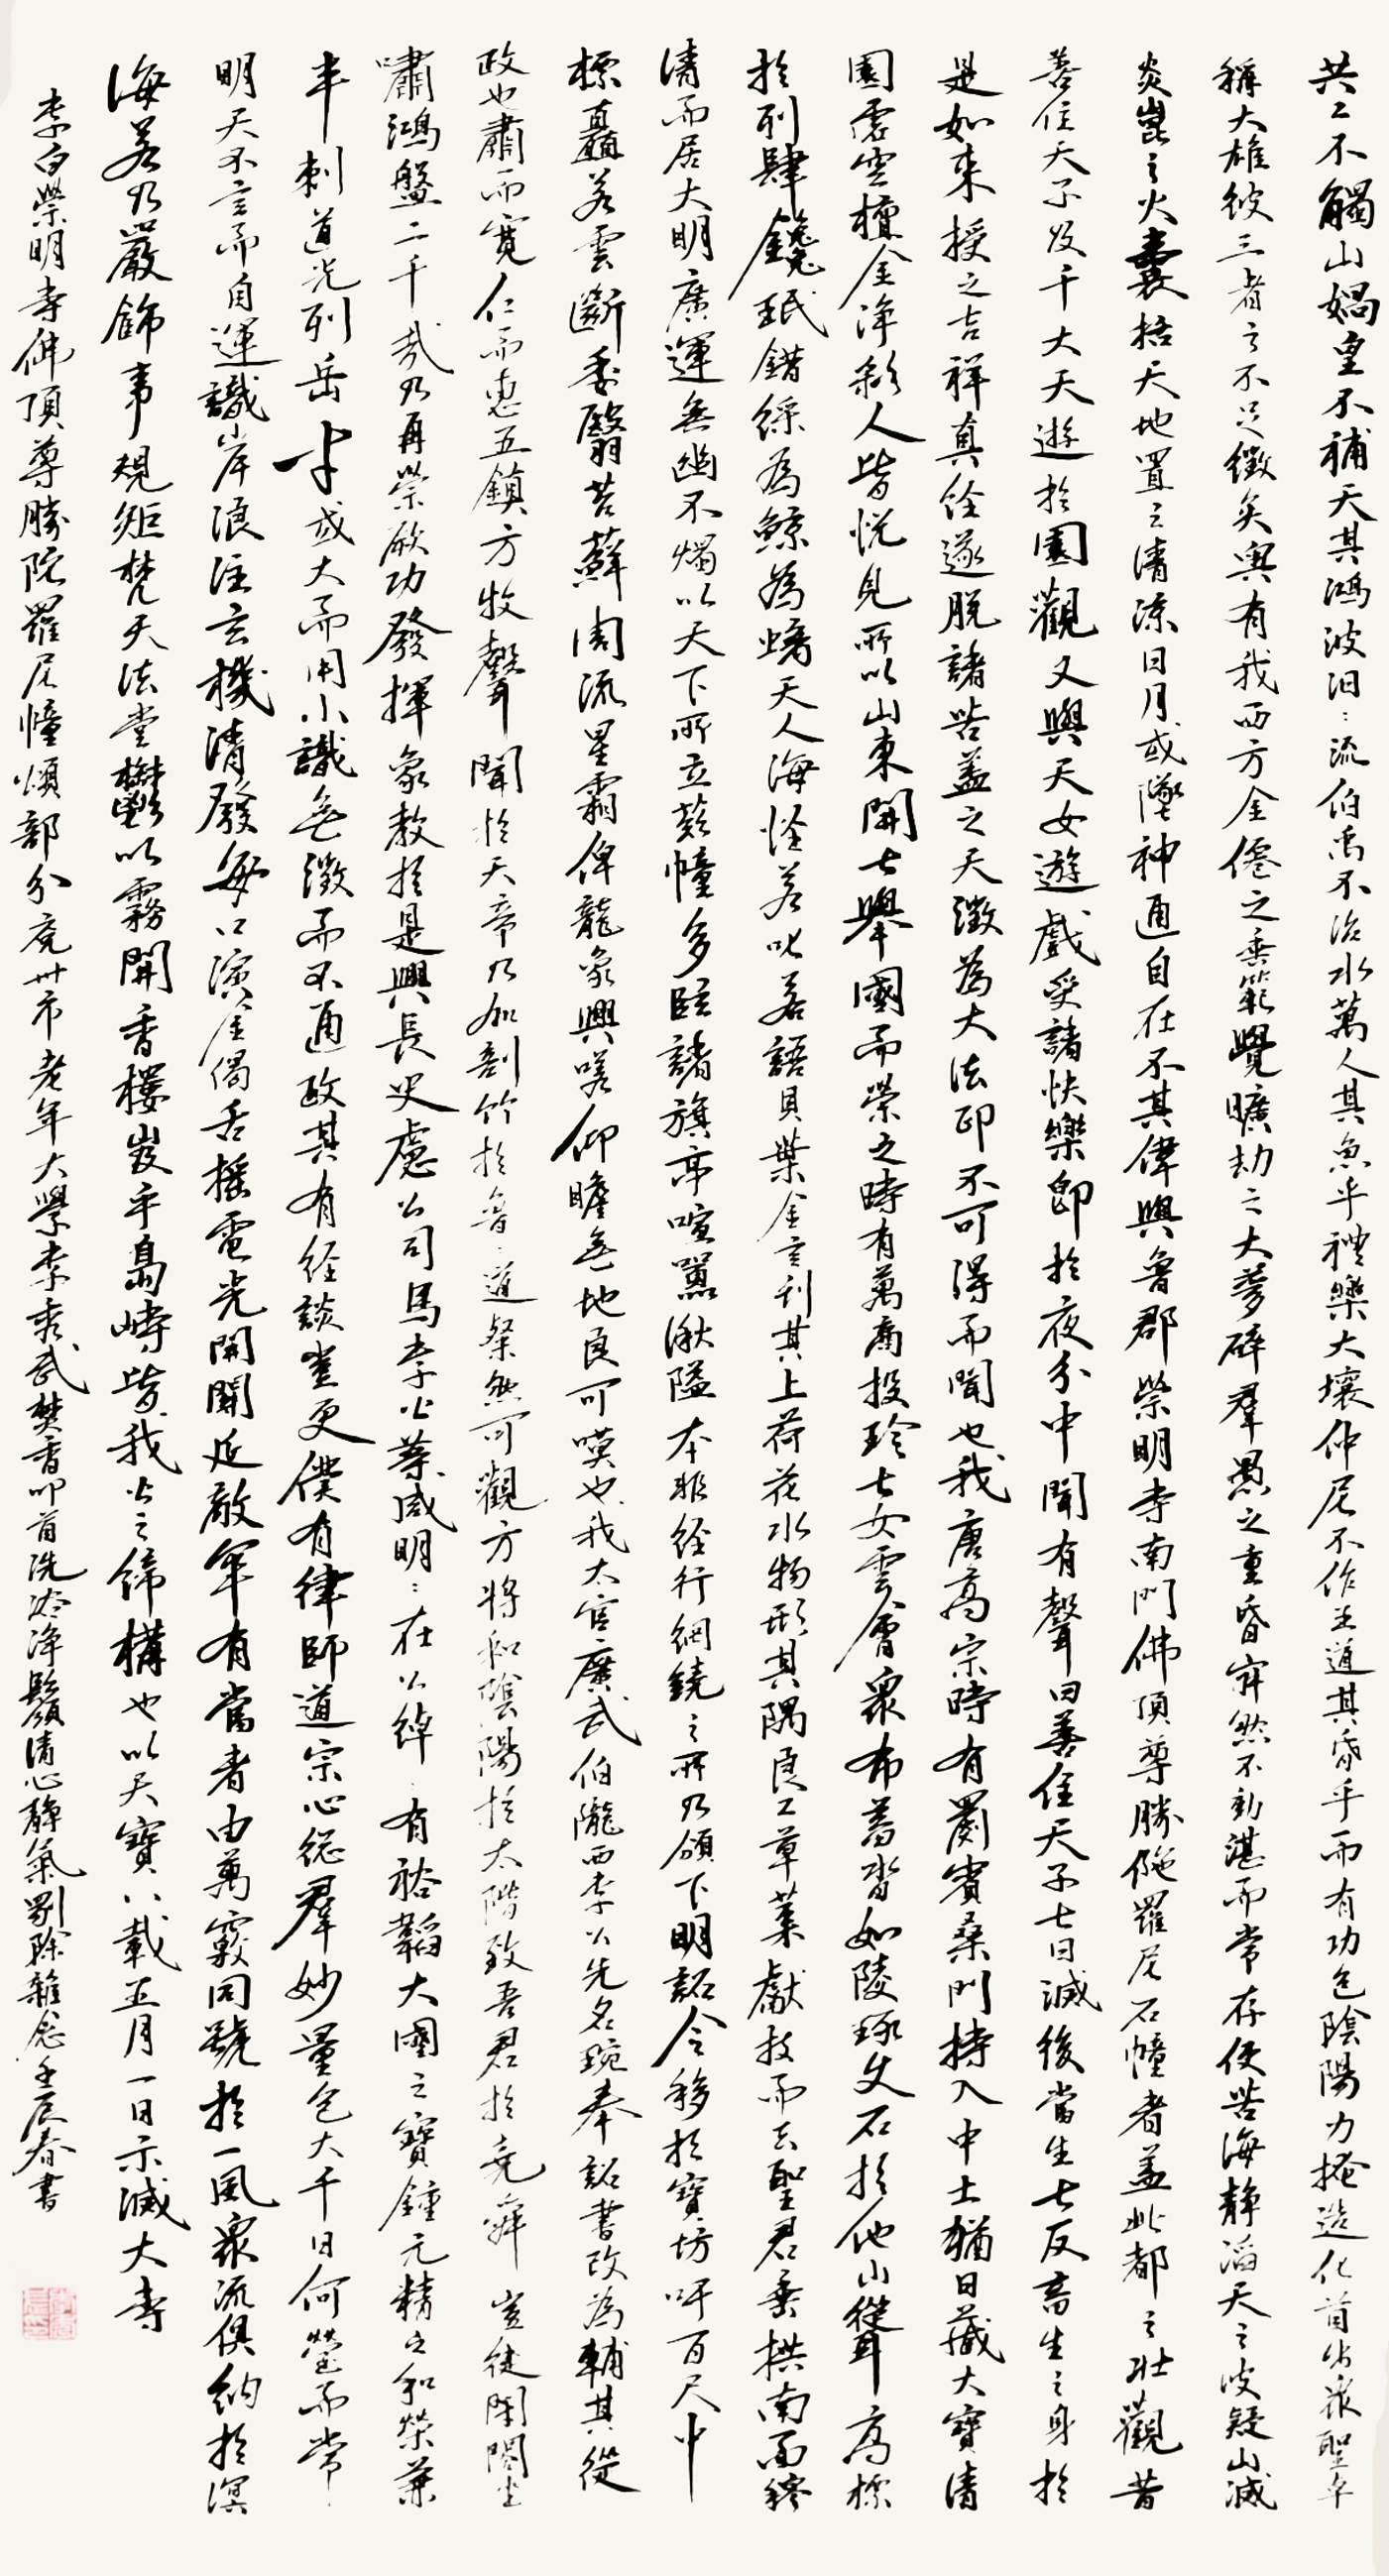 共工不觸山媧皇不補天其鴻波汩:流伯禹不治水萬人其魚乎禮樂大壞仲尼不作王道其昏乎而有功包陰陽力掩造化首出衆聖卓
稱大雄彼三者之不足徵矣粵有我西方金僊之垂範覺曠劫之大夢碎羣愚之重昏寂然不動湛而常存使苦海静滔天之波疑山滅
炎崑之火囊括天地置之清涼日月或墜神通自在不其偉與魯郡崇明寺南門佛頂尊勝陁羅尼石幢者盖此都之壯觀昔
善住天子及千大天遊於園觀又與天女遊戲受諸快樂即於夜分中聞有聲曰善住天子七日滅後當生七反畜生之身於
是如来授之吉祥真経遂脱諸苦盖之天徵為大法印不可得而聞也我唐高宗時有罽賓桑門持入中土猶日藏大寶清
園虛空檀金浄彩人皆悦見所以山東開士舉國而崇之時有萬商投珍士女雲會衆布蓄沓如陵琢文石於他山聳高標
於列肆鑱珉錯綵為鯨為螭天人海怪若叱若語貝葉金言刊其上荷花水物形其隅良工草萊獻技而去聖君垂拱南面穆
清而居大明廣運無幽不燭以天下所立兹幢多臨諸旗亭喧囂湫隘本非経行網繞之所乃頒下明詔令移於寶坊吁百尺中
標矗若雲斷委翳苔蘚周流星霜俾龍象興嗟仰瞻無地良可嘆也我太官廣武伯隴西李公先名琬奉詔書改為輔其從
政也肅而寬仁而惠五鎮方牧聲聞於天帝乃加剖竹於魯道粲然可觀方将和陰陽於太階致吾君於堯舜豈徒閉閣坐
嘯鴻盤二千哉乃再崇厥功發揮象教於是與長史盧公司馬李公等咸明:在公綽:有裕韜大國之寶鍾元精之和榮兼
半刺道光列岳才或大而用小識無微而不通政其有経談豈更僕有律師道宗心総羣妙量包大千日何瑩而常
明天不言而自運識岸浪注玄機清發每口演金偈舌摇電光開關延敵罕有當者由萬竅同號於一風衆流俱納於溟
海若乃嚴飾事規矩梵天法堂鬱以霧開香樓岌乎島峙皆我公之締構也以天寶八載五月一日示滅大寺
李白崇明寺佛頂尊勝陀羅尼幢頌部分兖州市老年大學李秀武焚香叩首洗淨鬚清心靜氣剔除雜念壬辰春書